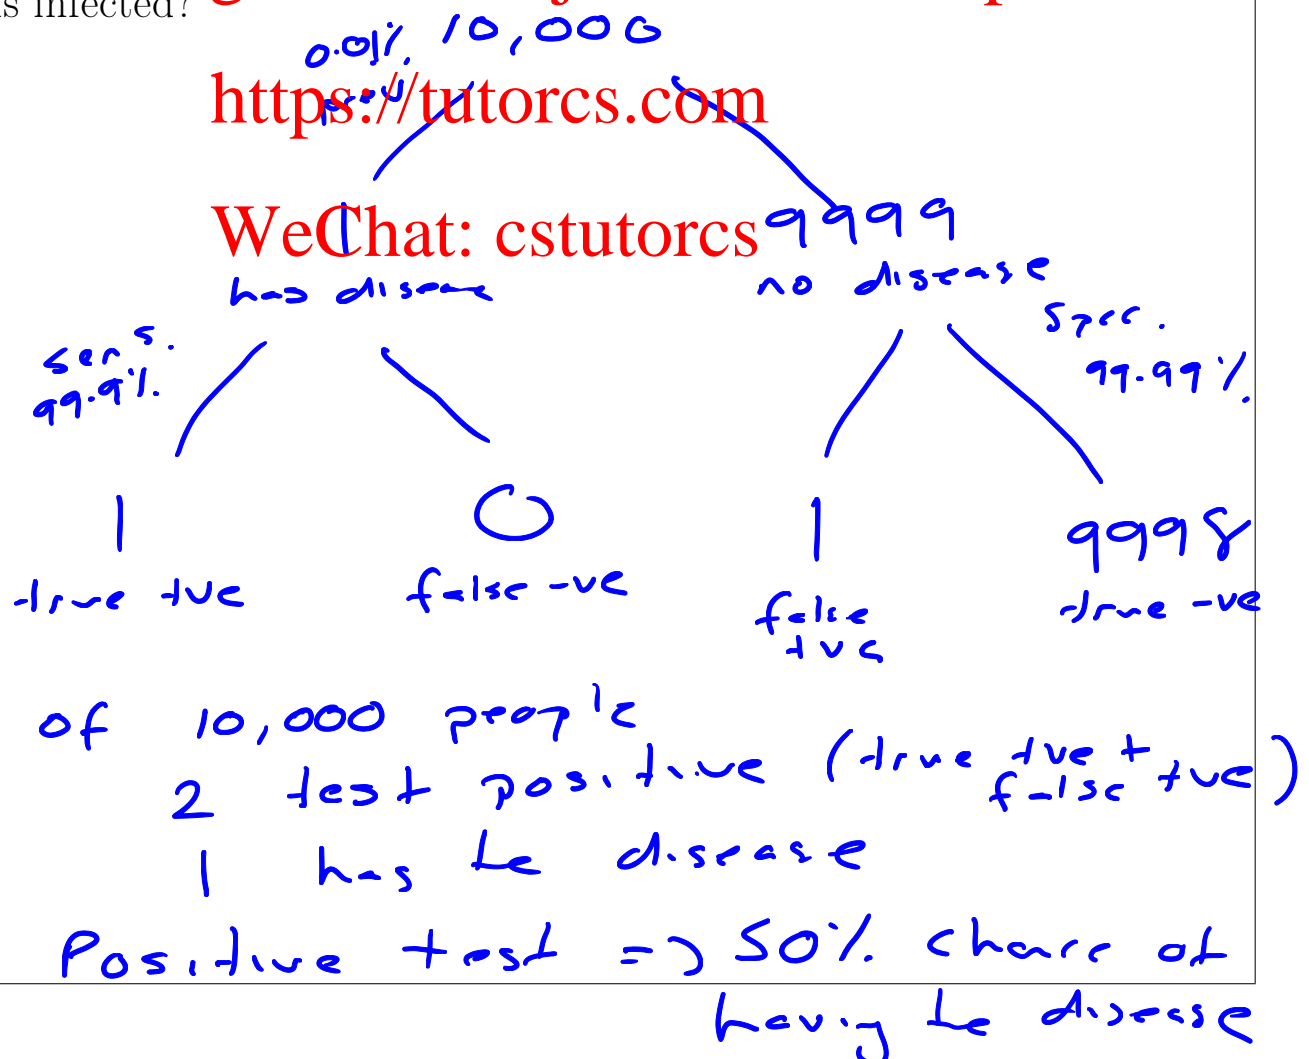 is infected?
0.01% 10,000
https://tutorcs.com
WeChat: cstutorcs
1 9999
has disease no disease
sens. 99.9%
spec. 99.99%
1 0 1 9998
true +ve false -ve false +ve true -ve
of 10,000 people
2 test positive (true +ve + false +ve)
1 has the disease
Positive test => 50% chance of
having the disease